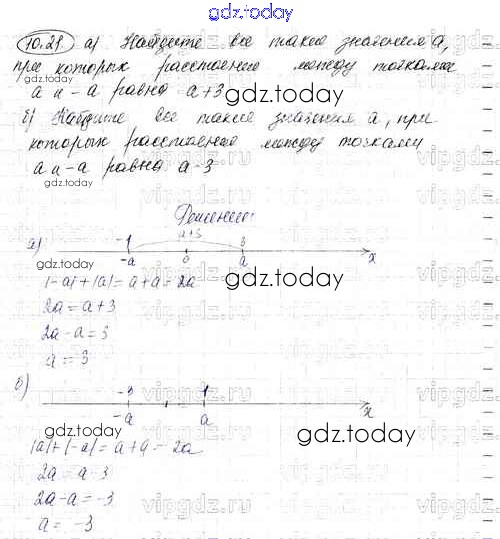 gdz.today
10.21. а) Найдите все такие значения а,
при которых расстояние между точками
а и -а равно а+3
gdz.today
б) Найдите все такие значения а, при
которых расстояние между точками
а и -а равно а-3
gdz.today
Решение:
а) -1 а+3 3
-а 0 а x
gdz.today
|-а|+|а| = а+а = 2а
gdz.today
2а = а+3
2а-а = 3
gdz.today
а = 3
б) -3 1
-а а x
gdz.today
|а|+|-а| = а+а = 2а
gdz.today
2а = а-3
2а-а = -3
а = -3